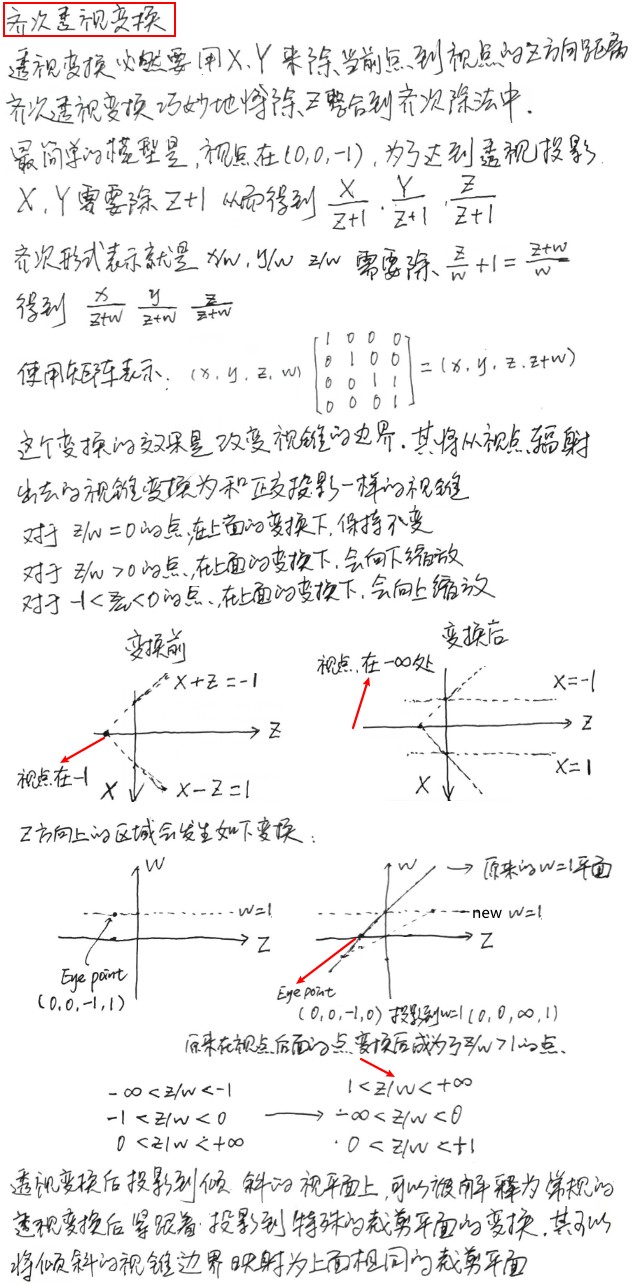 齐次透视变换
透视变换必然要用X、Y来除当前点到视点的Z方向距离
齐次透视变换巧妙地将除Z整合到齐次除法中.
最简单的模型是,视点在(0,0,-1),为了达到透视投影
X、Y需要除Z+1 从而得到 X/(Z+1) . Y/(Z+1) . Z/(Z+1)
齐次形式表示就是 x/w, y/w z/w 需要除 z/w + 1 = (z+w)/w
得到 x/(z+w) y/(z+w) z/(z+w)
使用矩阵表示: (x, y, z, w) [1 0 0 0
0 1 0 0
0 0 1 1
0 0 0 1] = (x, y, z, z+w)
这个变换的效果是改变视锥的边界.其将从视点辐射
出去的视锥变换为和正交投影一样的视锥
对于 z/w = 0 的点,在上面的变换下,保持不变
对于 z/w > 0 的点,在上面的变换下,会向下缩放
对于 -1 < z/w < 0 的点、在上面的变换下,会向上缩放
变换前
X+Z=-1
Z
视点在-1
X
X-Z=1
变换后
视点在-∞处
X=-1
Z
X=1
X
Z方向上的区域会发生如下变换:
W
w=1
Z
Eye point
(0,0,-1,1)
w
原来的w=1平面
new w=1
Z
Eye point
(0,0,-1,0) 投影到w=1 (0,0,∞,1)
原来在视点后面的点变换后成为了z/w>1的点、
-∞<z/w<-1 1<z/w<+∞
-1<z/w<0 → -∞<z/w<0
0<z/w<+∞ 0<z/w<+1
透视变换后投影到倾斜的视平面上,可以被解释为常规的
透视变换后紧跟着投影到特殊的裁剪平面的变换.其可以
将倾斜的视锥边界映射为上面相同的裁剪平面